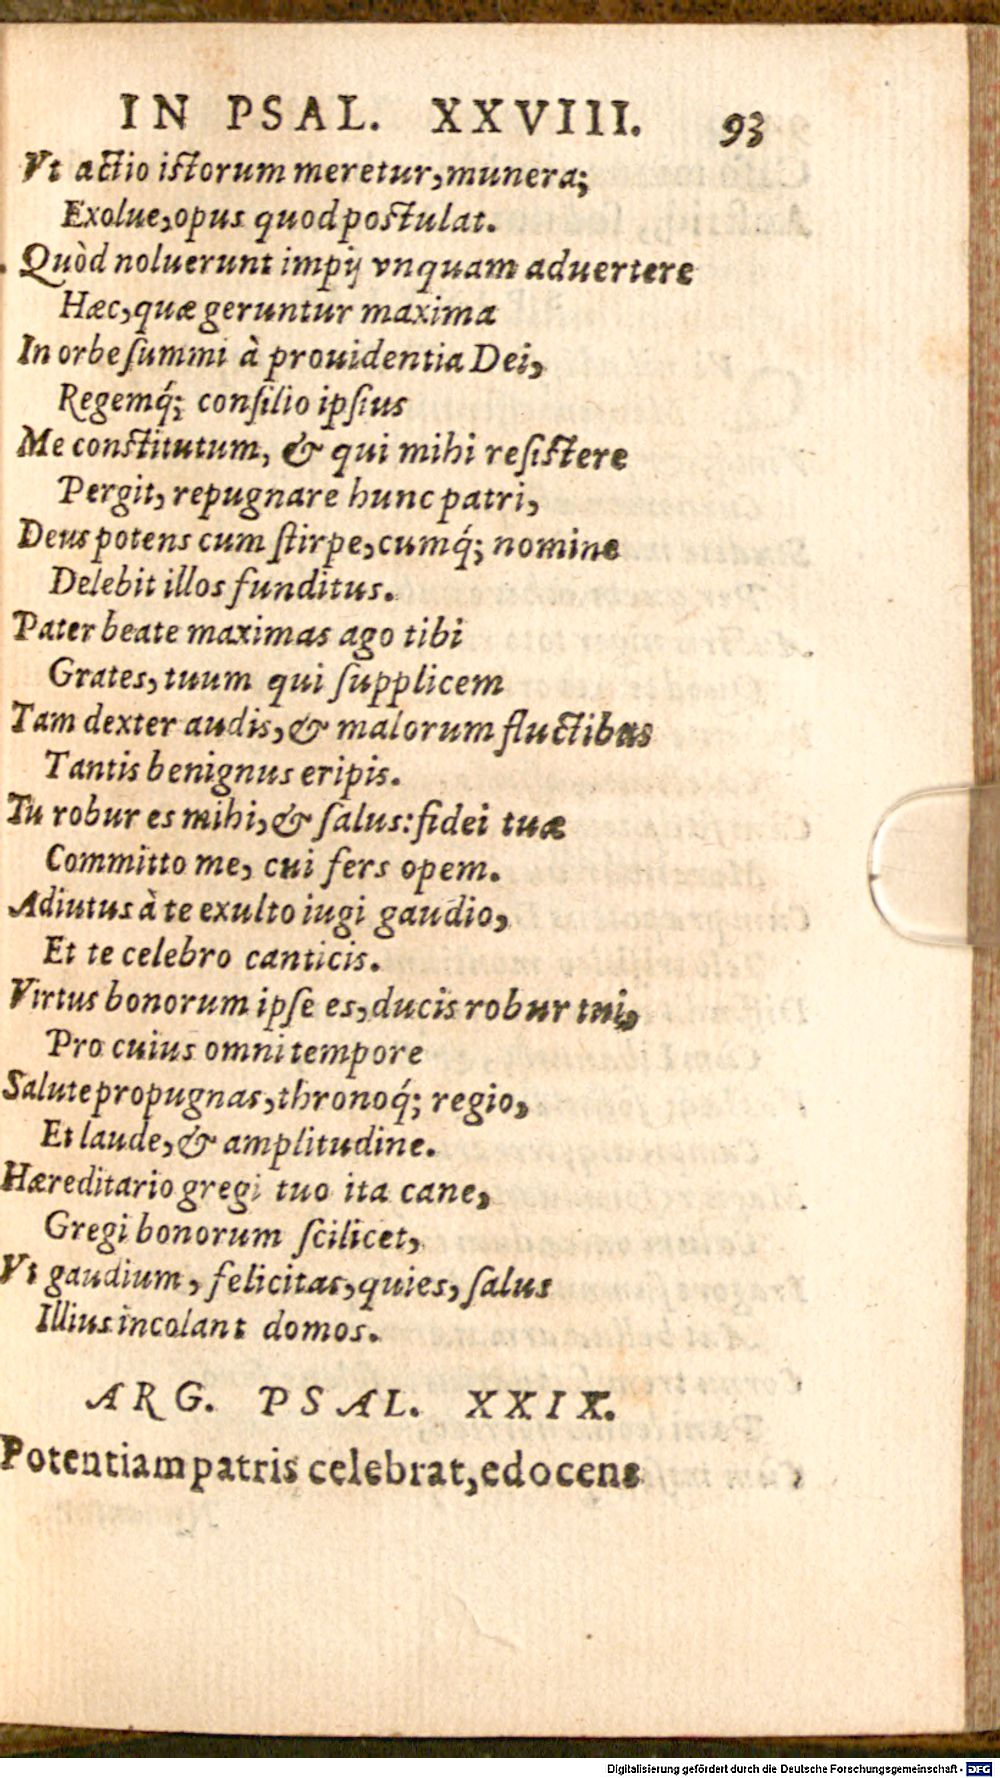 IN PSAL. XXVIII. 93
Vt actio istorum meretur, munera;
Exolue, opus quod postulat.
Quòd noluerunt impij vnquam aduertere
Hæc, quæ geruntur maxima
In orbe ſummi à prouidentia Dei,
Regemq́; conſilio ipſius
Me constitutum, & qui mihi reſistere
Pergit, repugnare hunc patri,
Deus potens cum ſtirpe, cumq́; nomine
Delebit illos funditus.
Pater beate maximas ago tibi
Grates, tuum qui ſupplicem
Tam dexter audis, & malorum fluctibus
Tantis benignus eripis.
Tu robur es mihi, & ſalus: fidei tuæ
Committo me, cui fers opem.
Adiutus à te exulto iugi gaudio,
Et te celebro canticis.
Virtus bonorum ipſe es, ducis robur tui,
Pro cuius omni tempore
Salute propugnas, thronoq́; regio,
Et laude, & amplitudine.
Hæreditario gregi tuo ita cane,
Gregi bonorum ſcilicet,
Vt gaudium, felicitas, quies, ſalus
Illius incolant domos.
ARG. PSAL. XXIX.
Potentiam patris celebrat, edocens
Digitalisierung gefördert durch die Deutsche Forschungsgemeinschaft - DFG